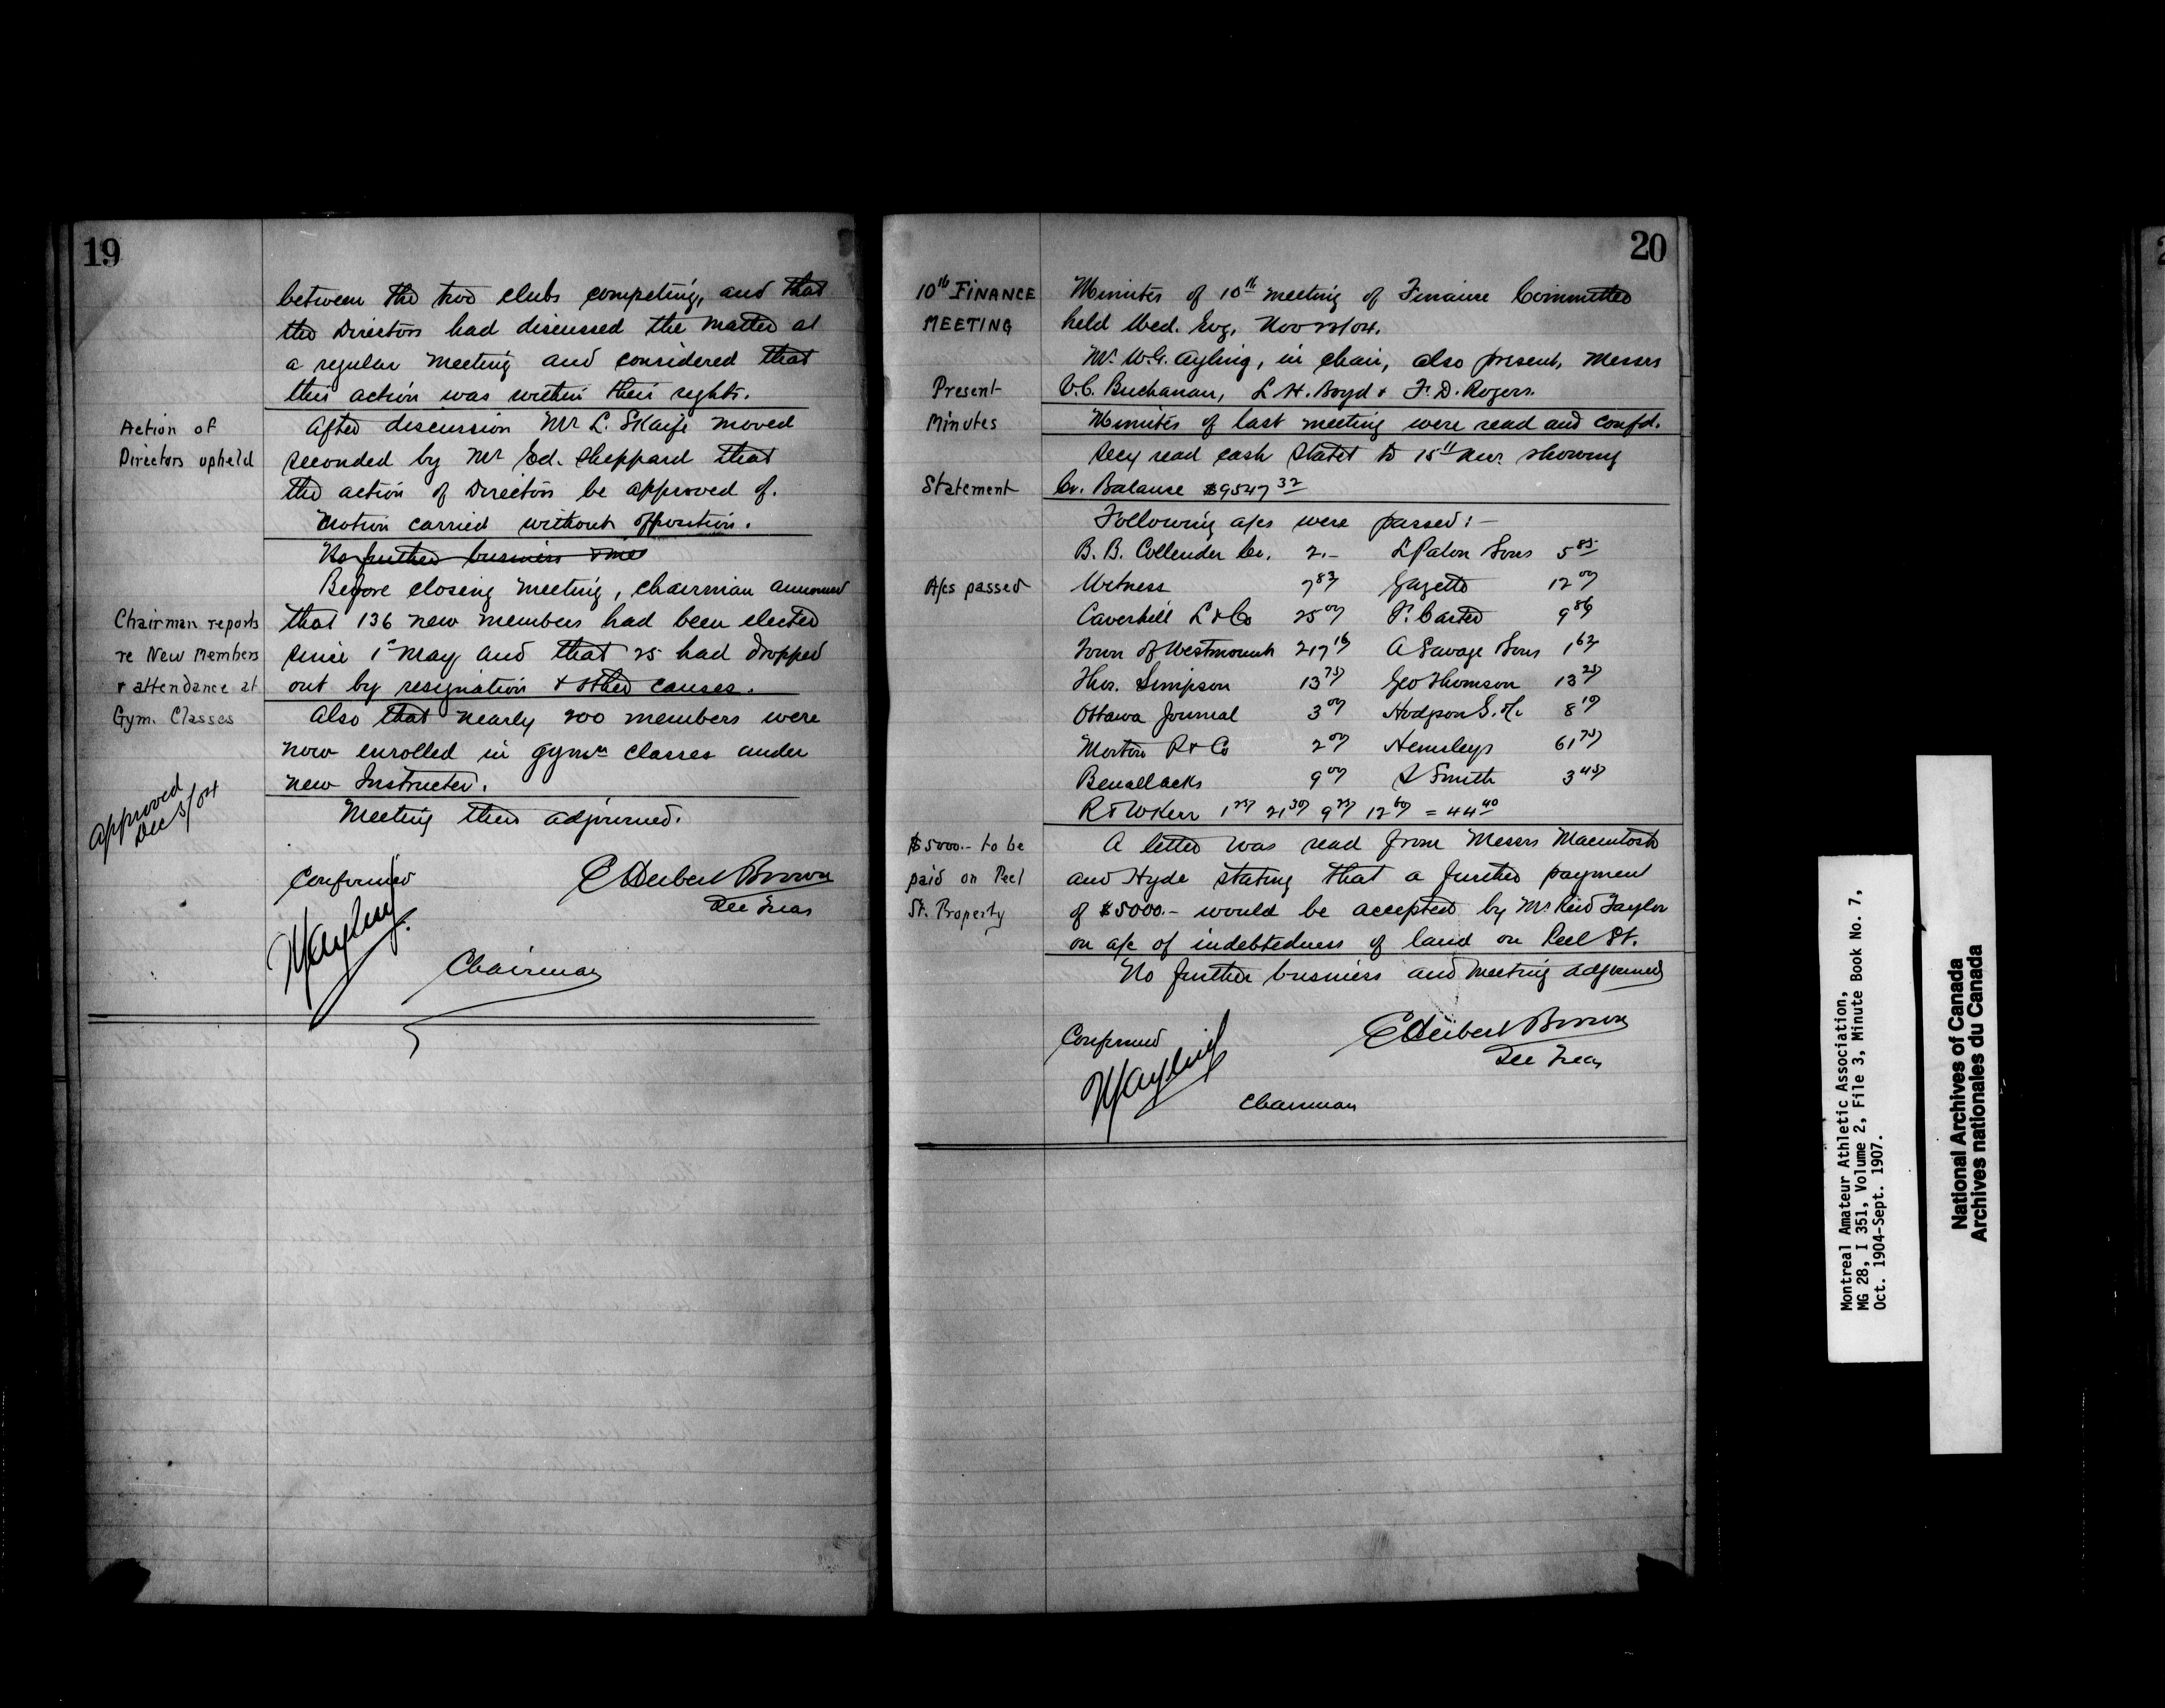 19
between the two clubs competing, and that
the Directors had discussed the matter at
a regular meeting and considered that
their action was within their rights.
Action of
Directors upheld
After discussion Mr L. Skaife moved
seconded by Mr Ed. Sheppard that
the action of Directors be approved of.
Motion carried without opposition.
No further business
Before closing meeting, chairman announced
Chairman reports
re New Members
& attendance at
Gym. Classes
that 136 new members had been elected
since 1st May, and that 25 had dropped
out by resignation & other causes.
Also that nearly 200 members were
now enrolled in gymn classes under
new Instructor.
approved
Dec 5/04
Meeting then adjourned.
Confirmed
E Herbert Brown
Sec Treas
WGAyling
Chairman
20
10th FINANCE
MEETING
Minutes of 10th meeting of Finance Committee
held Wed. Evg. Nov 23/04.
Mr. W.G. Ayling, in chair, also present, Messrs
Present
V.C. Buchanan, L.H. Boyd & F.D. Rogers.
Minutes
Minutes of last meeting were read and confd.
Secy read cash Statet to 15th Nov. showing
Statement
Cr. Balance $9547 32
Following a/cs were passed:—
B. B. Collender Co. 2.– L Paton Sons 5 85
A/cs passed
Witness 7 83 Gazette 12 00
Caverhill L & Co 25 00 F. Carter 9 86
Town of Westmount 217 16 A Savage Sons 1 62
Thos. Simpson 13 75 Geo Thomson 13 25
Ottawa Journal 3 00 Hodgson S. 8 10
Morton P & Co 2 00 Hemsleys 61 75
Benallacks 9 00 Smith 3 45
R & W Kerr 1 25 21 30 9 25 12 60 = 44 40
$5000.– to be
paid on Peel
St. Property
A letter was read from Messrs Macintosh
and Hyde stating that a further payment
of $5000.– would be accepted by Mr Reid Taylor
on a/c of indebtedness of land on Peel St.
No further business and meeting adjourned
Confirmed
E Herbert Brown
Sec Treas
WGAyling
Chairman
Montreal Amateur Athletic Association,
MG 28, I 351, Volume 2, File 3, Minute Book No. 7,
Oct. 1904-Sept. 1907.
National Archives of Canada
Archives nationales du Canada